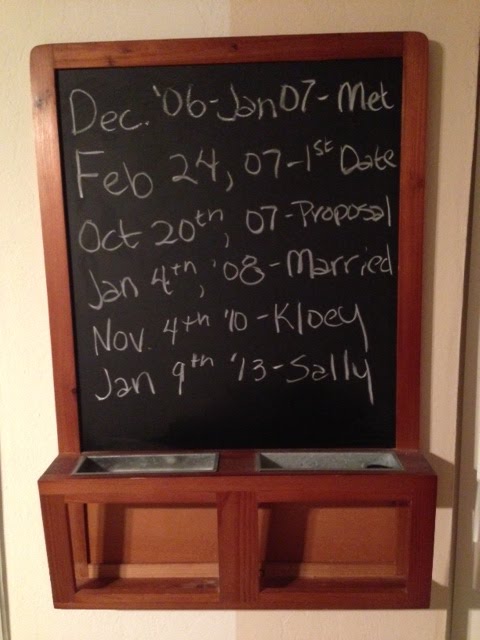 Dec. '06-Jan 07-Met
Feb 24, 07-1st Date
Oct 20th, 07-Proposal
Jan 4th, '08-Married
Nov. 4th '10-Kloey
Jan 9th '13-Sally